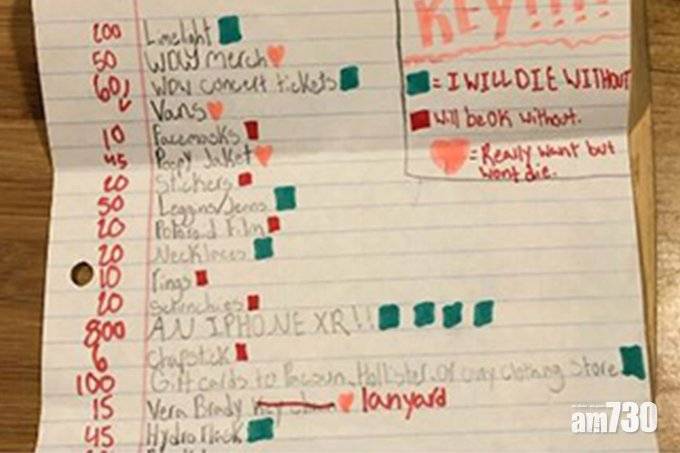 KEY!!!!
= I WILL DIE WITHOUT
Will be OK without.
= Really want but
wont die.
200 Limelight
50 WOW merch
60 WOW concert tickets
Vans
10 Facemasks
45 Jaket
20 Stickers
50 Leggins/Jenns
20 Film
20 Necklaces
10 rings
20 Scrunchies
800 AN IPHONE XR!!
6 Chapstick
100 Gift cards to Pacsun, Hollister, or any clothing store
15 Vera Brady lanyard
45 Hydro Flack
am730